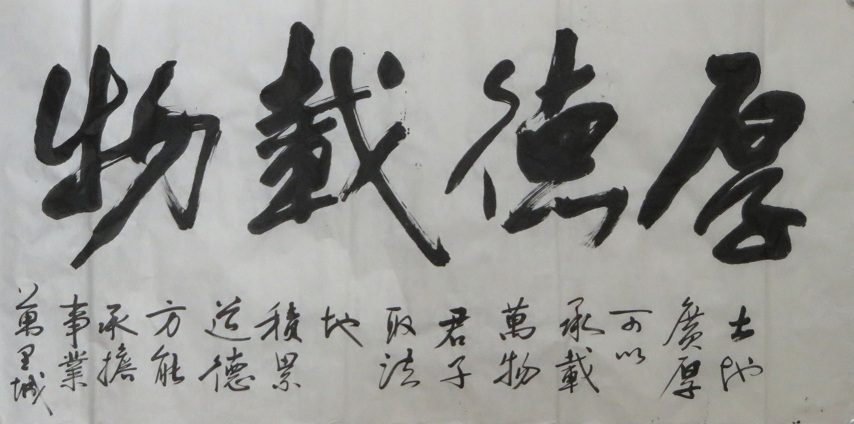 厚德載物
土地
廣厚
可以
承載
萬物
君子
取法
地
積累
道德
方能
承擔
事業
萬里城